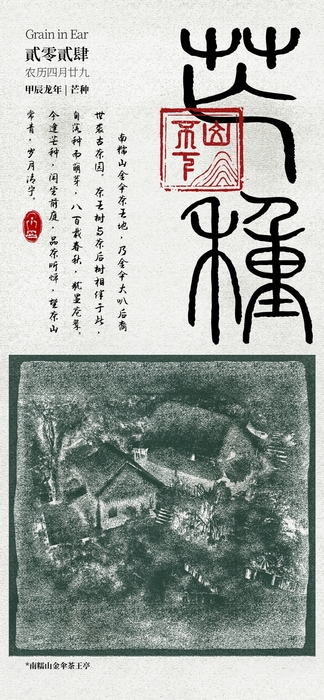 Grain in Ear
贰零贰肆
农历四月廿九
甲辰龙年 | 芒种
芒種
南糯山金伞茶王地，乃金伞大叭后裔
世袭古茶园，茶王树与茶后树相伴于此，
自沉种而萌芽，八百载春秋，犹显苍翠，
今逢芒种，闲坐前庭，品茶听蝉，望茶山
常青，岁月清宁。
*南糯山金伞茶王亭